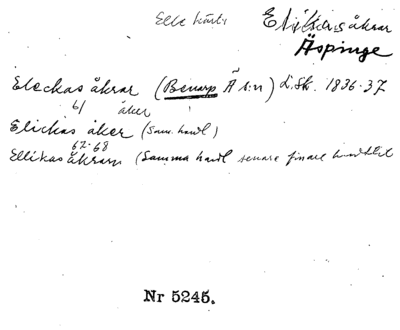 Elle kärts
Elickas åkrar
Äspinge
Eleckas åkrar (Benarp Ä s:n) L.Sk. 1836-37
61 åker
Elickas åker (Sam. handl)
67-68
Ellikas åkrarn (Samma handl senare finare
Nr 5245.